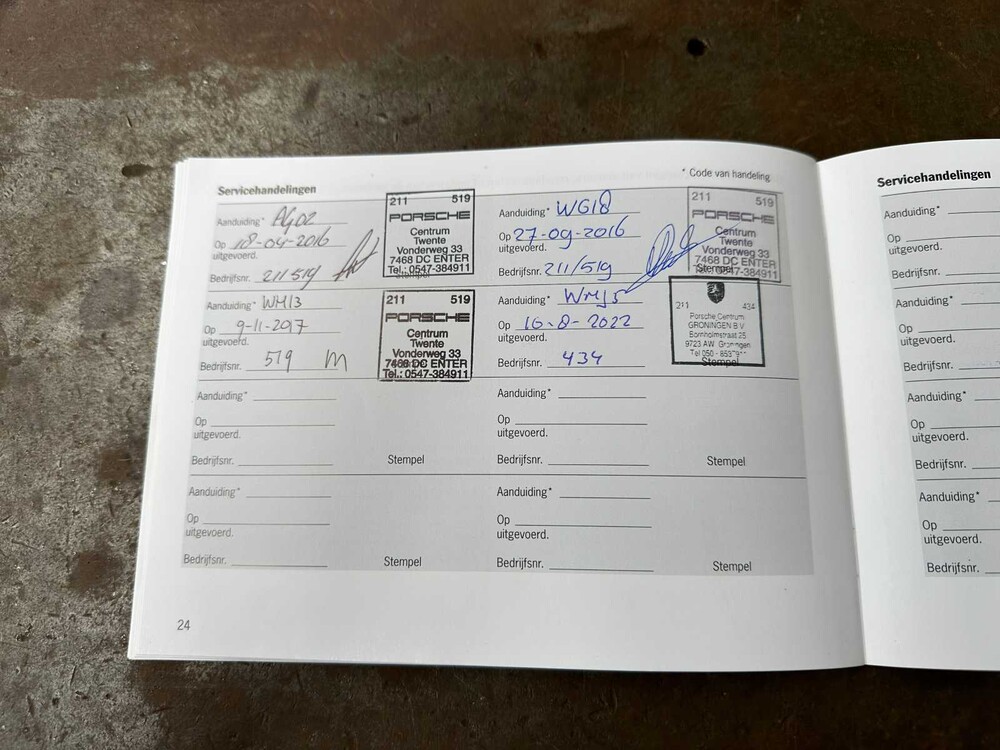 Servicehandelingen
* Code van handeling
Aanduiding* AG02
Op 18-04-2016
uitgevoerd.
Bedrijfsnr. 211/519
211 519
PORSCHE
Centrum
Twente
Vonderweg 33
7468 DC ENTER
Tel.: 0547-384911
Aanduiding* WG18
Op 27-09-2016
uitgevoerd.
Bedrijfsnr. 211/519
211 519
PORSCHE
Centrum
Twente
Vonderweg 33
7468 DC ENTER
Tel.: 0547-384911
Stempel
Aanduiding* WM13
Op 9-11-2017
uitgevoerd.
Bedrijfsnr. 519
211 519
PORSCHE
Centrum
Twente
Vonderweg 33
7468 DC ENTER
Tel.: 0547-384911
Aanduiding* WM15
Op 16-8-2022
uitgevoerd.
Bedrijfsnr. 434
211 434
Porsche Centrum
GRONINGEN B.V.
Bornholmstraat 25
9723 AW Groningen
Tel 050 -
Stempel
Aanduiding*
Op
uitgevoerd.
Bedrijfsnr. Stempel
Aanduiding*
Op
uitgevoerd.
Bedrijfsnr. Stempel
Aanduiding*
Op
uitgevoerd.
Bedrijfsnr. Stempel
Aanduiding*
Op
uitgevoerd.
Bedrijfsnr. Stempel
24
Servicehandelingen
Aanduiding*
Op
uitgevoerd.
Bedrijfsnr.
Aanduiding*
Op
uitgevoerd.
Bedrijfsnr.
Aanduiding*
Op
uitgevoerd.
Bedrijfsnr.
Aanduiding*
Op
uitgevoerd.
Bedrijfsnr.